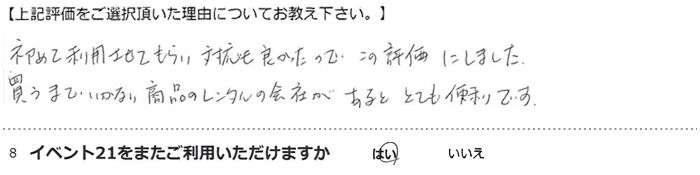 【上記評価をご選択頂いた理由についてお教え下さい。】
初めて利用させてもらい対抗も良かったので この評価 にしました.
買うまでいかない商品のレンタルの会社が あると とても便利です.
8 イベント21をまたご利用いただけますか はい いいえ